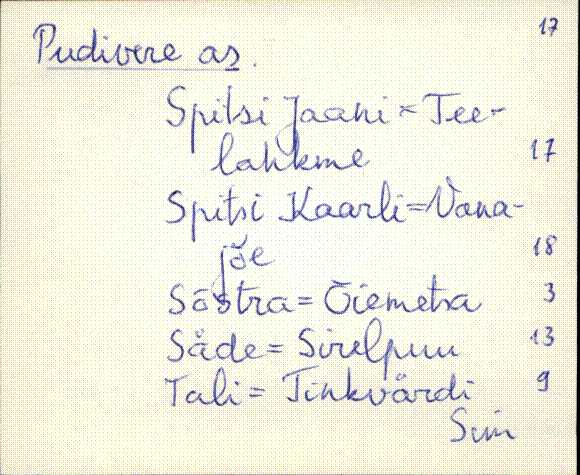 17
Pudivere as.
Spitsi Jaani = Tee-
lahkme 17
Spitsi Kaarli = Vana-
jõe 18
Sõstra = Õiemetsa 3
Säde = Sirelpuu 13
Tali = Tinkvärdi 9
Sim